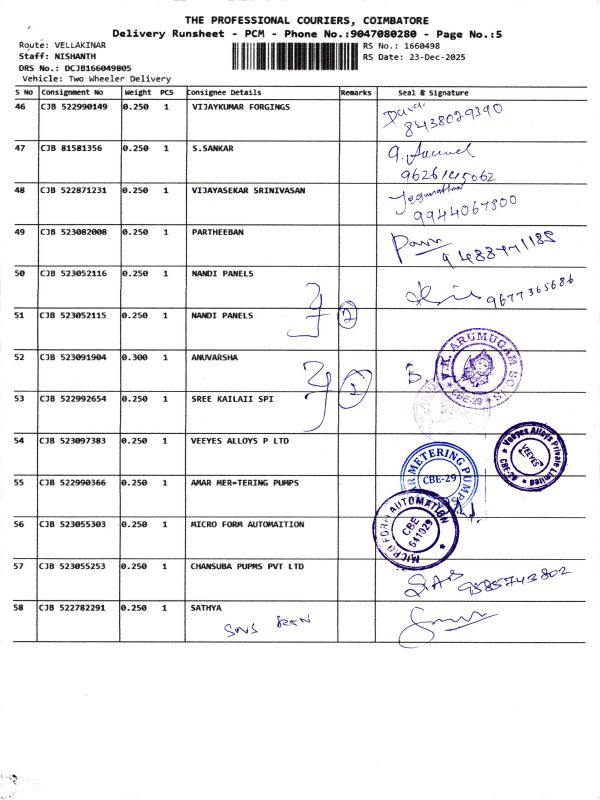 THE PROFESSIONAL COURIERS, COIMBATORE
Delivery Runsheet - PCM - Phone No.:9047080280 - Page No.:5
Route: VELLAKINAR
Staff: NISHANTH
DRS No.: DCJB166049805
Vehicle: Two Wheeler Delivery
RS No.: 1660498
RS Date: 23-Dec-2025
S No Consignment No Weight PCS Consignee Details Remarks Seal & Signature
46 CJB 522990149 0.250 1 VIJAYKUMAR FORGINGS
8438029390
47 CJB 81581356 0.250 1 S.SANKAR
9626145062
48 CJB 522871231 0.250 1 VIJAYASEKAR SRINIVASAN Jeganathan
9944067800
49 CJB 523082008 0.250 1 PARTHEEBAN
9488771185
50 CJB 523052116 0.250 1 NANDI PANELS 9677365686
51 CJB 523052115 0.250 1 NANDI PANELS 2
52 CJB 523091904 0.300 1 ANUVARSHA V.K. ARUMUGAM SONS
CBE-29
53 CJB 522992654 0.250 1 SREE KAILAII SPI 2
54 CJB 523097383 0.250 1 VEEYES ALLOYS P LTD Veeyes Alloys Private Limited
VEEYES
CBE-29
55 CJB 522990366 0.250 1 AMAR MER=TERING PUMPS AR METERING PUMPS
CBE-29
56 CJB 523055303 0.250 1 MICRO FORM AUTOMAITION MICRO FORM AUTOMATION
CBE
641029
57 CJB 523055253 0.250 1 CHANSUBA PUPMS PVT LTD 9585743802
58 CJB 522782291 0.250 1 SATHYA
SNS